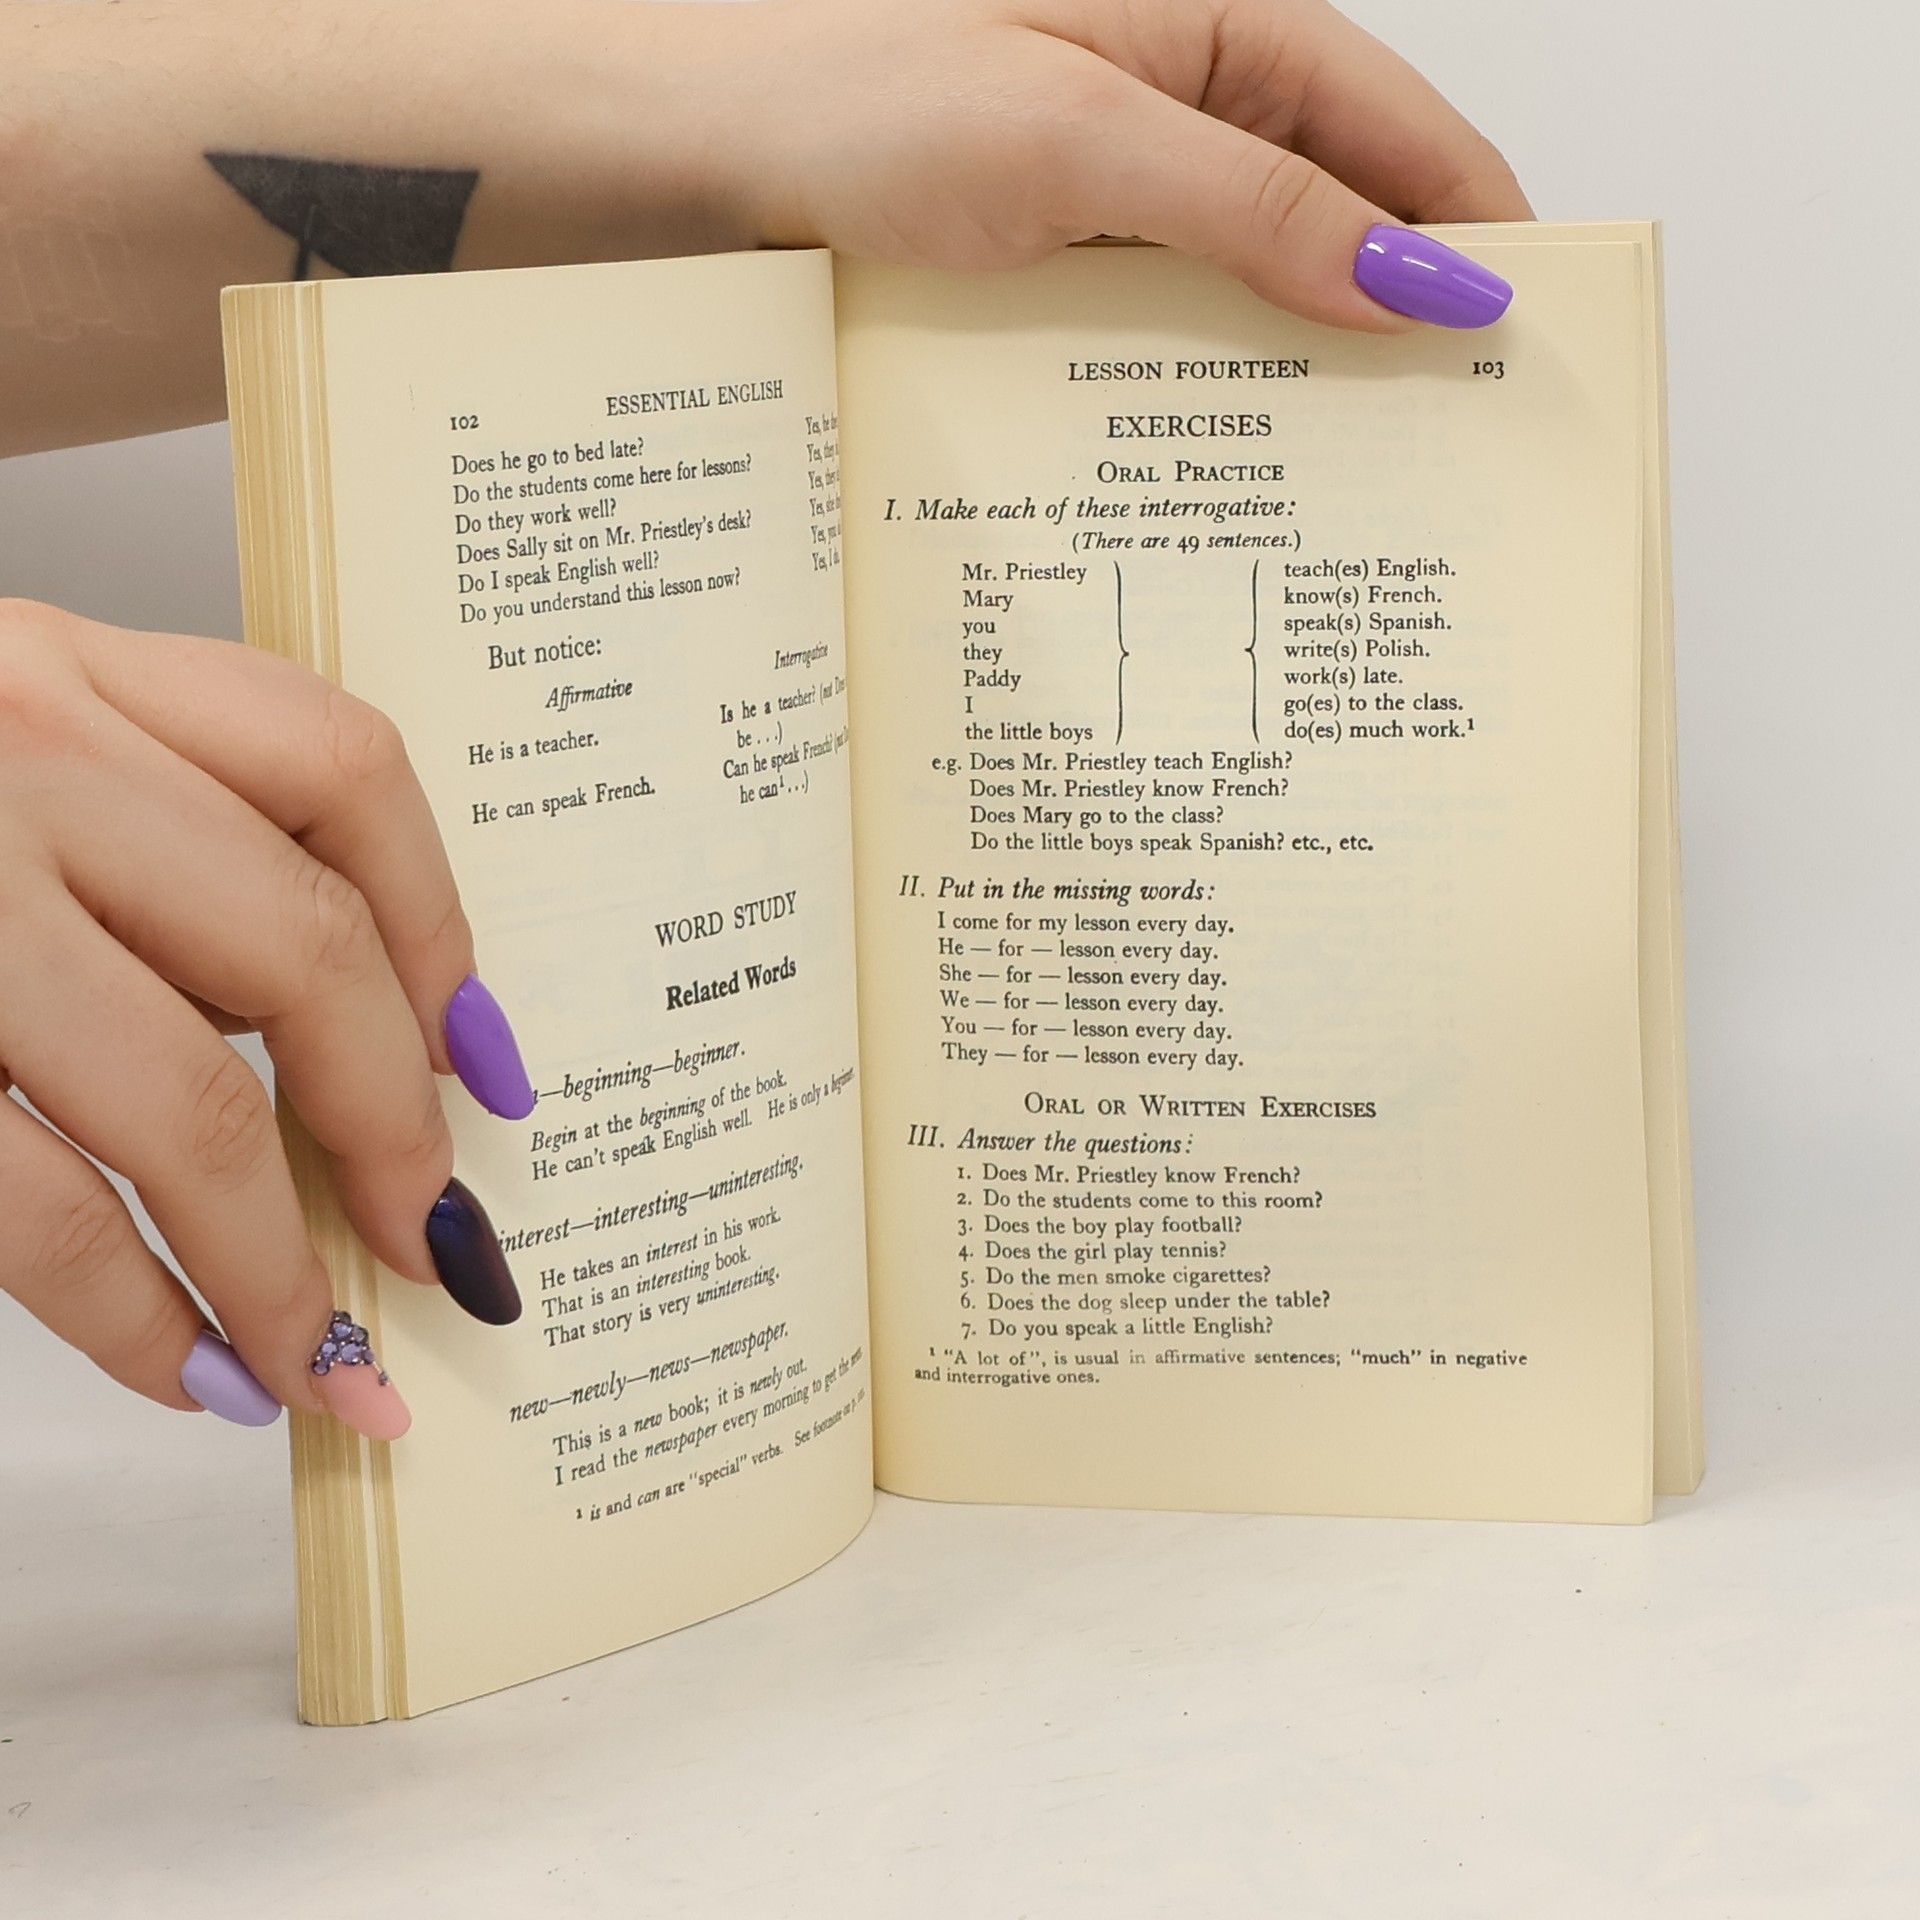 102 ESSENTIAL ENGLISH
Does he go to bed late? Yes, he
Do the students come here for lessons? Yes, they
Do they work well? Yes, they
Does Sally sit on Mr. Priestley's desk? Yes, she
Do I speak English well? Yes, you
Do you understand this lesson now? Yes, I do.
But notice:
Affirmative Interrogative
He is a teacher. Is he a teacher? (not
be . . .)
He can speak French. Can he speak French? (not
he can¹ . . .)
WORD STUDY
Related Words
—beginning—beginner.
Begin at the beginning of the book.
He can't speak English well. He is only a beginner.
interest—interesting—uninteresting.
He takes an interest in his work.
That is an interesting book.
That story is very uninteresting.
new—newly—news—newspaper.
This is a new book; it is newly out.
I read the newspaper every morning to get the news.
¹ is and can are "special" verbs. See footnote on p.
LESSON FOURTEEN 103
EXERCISES
ORAL PRACTICE
I. Make each of these interrogative:
(There are 49 sentences.)
Mr. Priestley teach(es) English.
Mary know(s) French.
you speak(s) Spanish.
they write(s) Polish.
Paddy work(s) late.
I go(es) to the class.
the little boys do(es) much work.¹
e.g. Does Mr. Priestley teach English?
Does Mr. Priestley know French?
Does Mary go to the class?
Do the little boys speak Spanish? etc., etc.
II. Put in the missing words:
I come for my lesson every day.
He — for — lesson every day.
She — for — lesson every day.
We — for — lesson every day.
You — for — lesson every day.
They — for — lesson every day.
ORAL OR WRITTEN EXERCISES
III. Answer the questions:
1. Does Mr. Priestley know French?
2. Do the students come to this room?
3. Does the boy play football?
4. Does the girl play tennis?
5. Do the men smoke cigarettes?
6. Does the dog sleep under the table?
7. Do you speak a little English?
¹ "A lot of", is usual in affirmative sentences; "much" in negative
and interrogative ones.